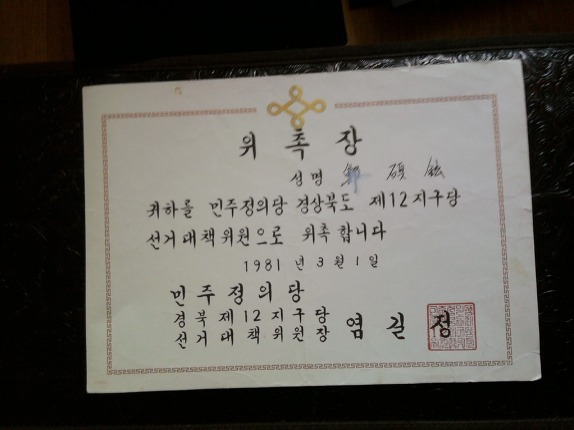 위촉장
성명 鄭 碩 鉉
귀하를 민주정의당 경상북도 제12지구당
선거대책위원으로 위촉합니다
1981년 3월 1일
민주정의당
경북제12지구당
선거대책위원장 염길정